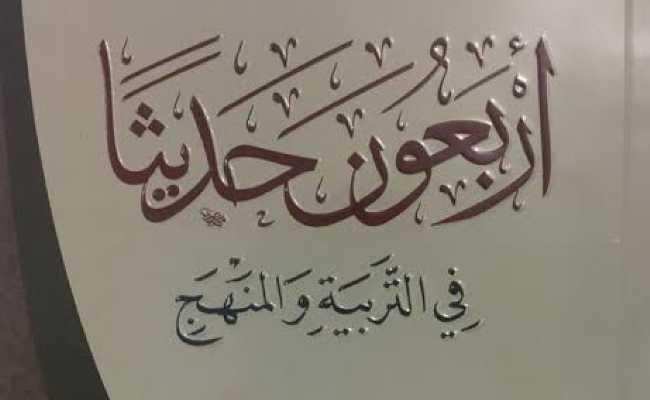 أَرْبَعُونَ حَدِيثًا
فِي التَّرْبِيَةِ وَالمَنْهَجِ